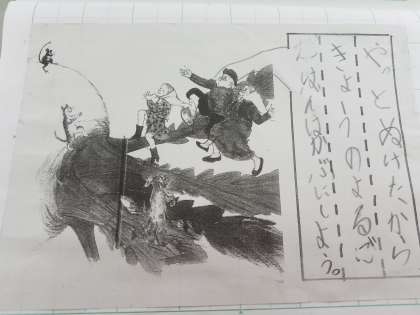 やっとぬけたから
きょうのよるご
はんはかぶにしよう。